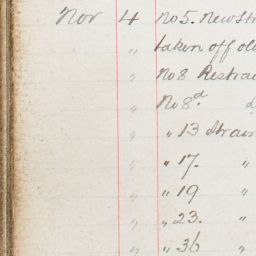 Nov 4 No 5. New Str
" taken off old
" No 8 Restrai
" No 8d.
" " 13 Strain
" " 17. "
" " 19 "
" " 23. "
" " 36 "